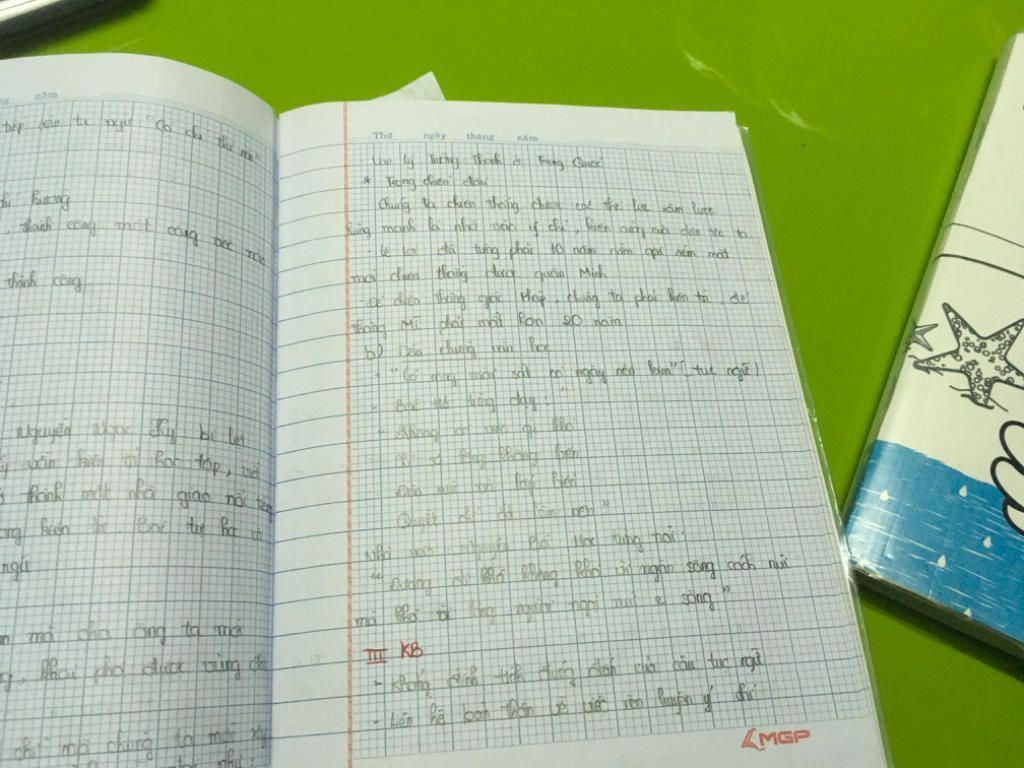 năm
tiếp câu tục ngữ "Có chí thì nên"
hương
thành công một công việc nào
thành công
Nguyễn Ngọc Ký bị liệt
vẫn kiên trì học tập, mới
thành một nhà giáo nổi tiếng
kiên trì, Bác tự học
ngữ
mà cha ông ta mới
khai phá được vùng
chí" mà chúng ta mới
Thứ ngày tháng năm
Lý Tưởng Thanh ở Trung Quốc
* Trong chiến đấu
Chúng ta chiến thắng được các thế lực xâm lược
hùng mạnh là nhờ có ý chí, kiên cường của dân tộc ta
- Lê Lợi đã từng phải 10 năm nằm gai nếm mật
mới chiến thắng được quân Minh
- Để chiến thắng giặc Pháp, chúng ta phải kiên trì, để
thắng Mĩ phải mất hơn 20 năm
b) Dẫn chứng văn học
- "Có công mài sắt có ngày nên kim" (tục ngữ)
- Bác Hồ từng dạy "
- Không có việc gì khó
Chỉ sợ lòng không bền
Đào núi và lấp biển
Quyết chí ắt làm nên"
Nhà văn Nguyễn Bá Học từng nói:
" Đường đi khó không khó vì ngăn sông cách núi
mà khó vì lòng người ngại núi e sông"
III KB
- Khẳng định tính đúng đắn của câu tục ngữ
- Liên hệ bản thân về việc rèn luyện ý chí
MGP